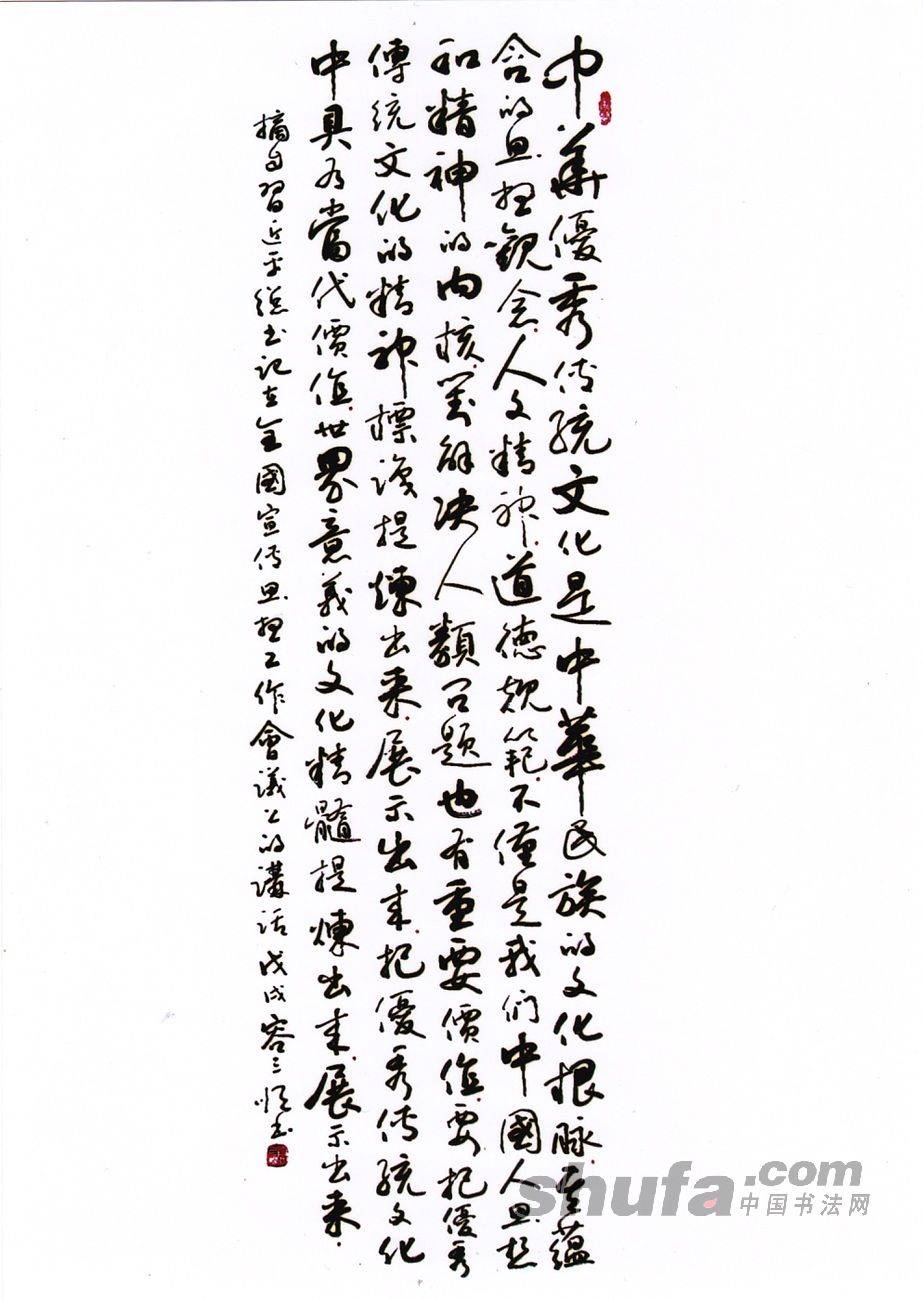 中華優秀传统文化是中華民族的文化根脉.其蕴
含的思想觀念.人文精神.道德規範.不僅是我们中國人思想
和精神的内核.對解决人類问题也有重要價值.要把優秀
傳统文化的精神標識提煉出来.展示出来.把優秀传统文化
中具有當代價值.世界意義的文化精髓提煉出来.展示出来.
摘自習近平總书记在全國宣传思想工作會議上的講話 戊戌 容三 书
shufa.com
中国书法网